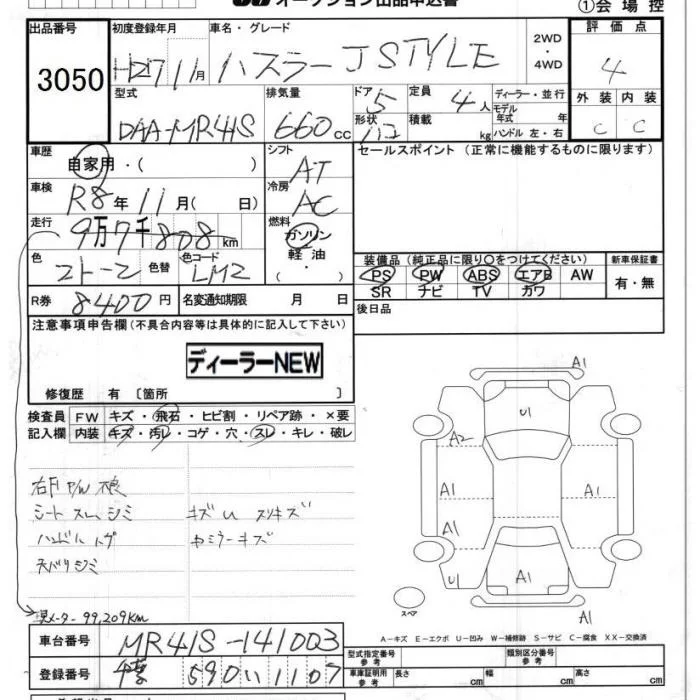 オークション出品申込書
①会場控
出品番号
3050
初度登録年月
H27 11月
車名・グレード
ハスラー J STYLE
2WD
・
4WD
評価点
4
外装 内装
C C
型式
DAA-MR41S
排気量
660 cc
ドア 5
形状
定員 4人
積載 kg
ディーラー・並行
モデル年式 年
ハンドル 左・右
車歴
自家用・( )
シフト
AT
セールスポイント (正常に機能するものに限ります)
車検
R8年11月( 日)
冷房
AC
走行
9万7千808km
燃料
ガソリン
軽油
・
( )
色
2トーン
色替
色コード
LM2
装備品 (純正品に限り○をつけてください)
新車保証書
PS PW ABS エアB AW
SR ナビ TV カワ
有・無
R券 8400円
名変通知期限 月 日
後日品
注意事項申告欄(不具合内容等は具体的に記入して下さい)
ディーラーNEW
修復歴 有〔箇所 〕
検査員 FW キズ・飛石・ヒビ割・リペア跡・×要
記入欄 内装 キズ・汚レ・コゲ・穴・スレ・キレ・破レ
シート スレ、シミ
キズ U スリキズ
ハンドル
ミラーキズ
天バリシミ
メーター 99,209km
A1
U1
A2
A1
A1
A1
U1
A1
A1
スペア
A-キズ E-エクボ U-凹み W-補修跡 S-サビ C-腐食 XX-交換済
車台番号
MR41S-141003
型式指定番号
参考
類別区分番号
参考
登録番号
千葉 590 い 1107
車庫証明用
参考
長さ cm
幅 cm
高さ cm